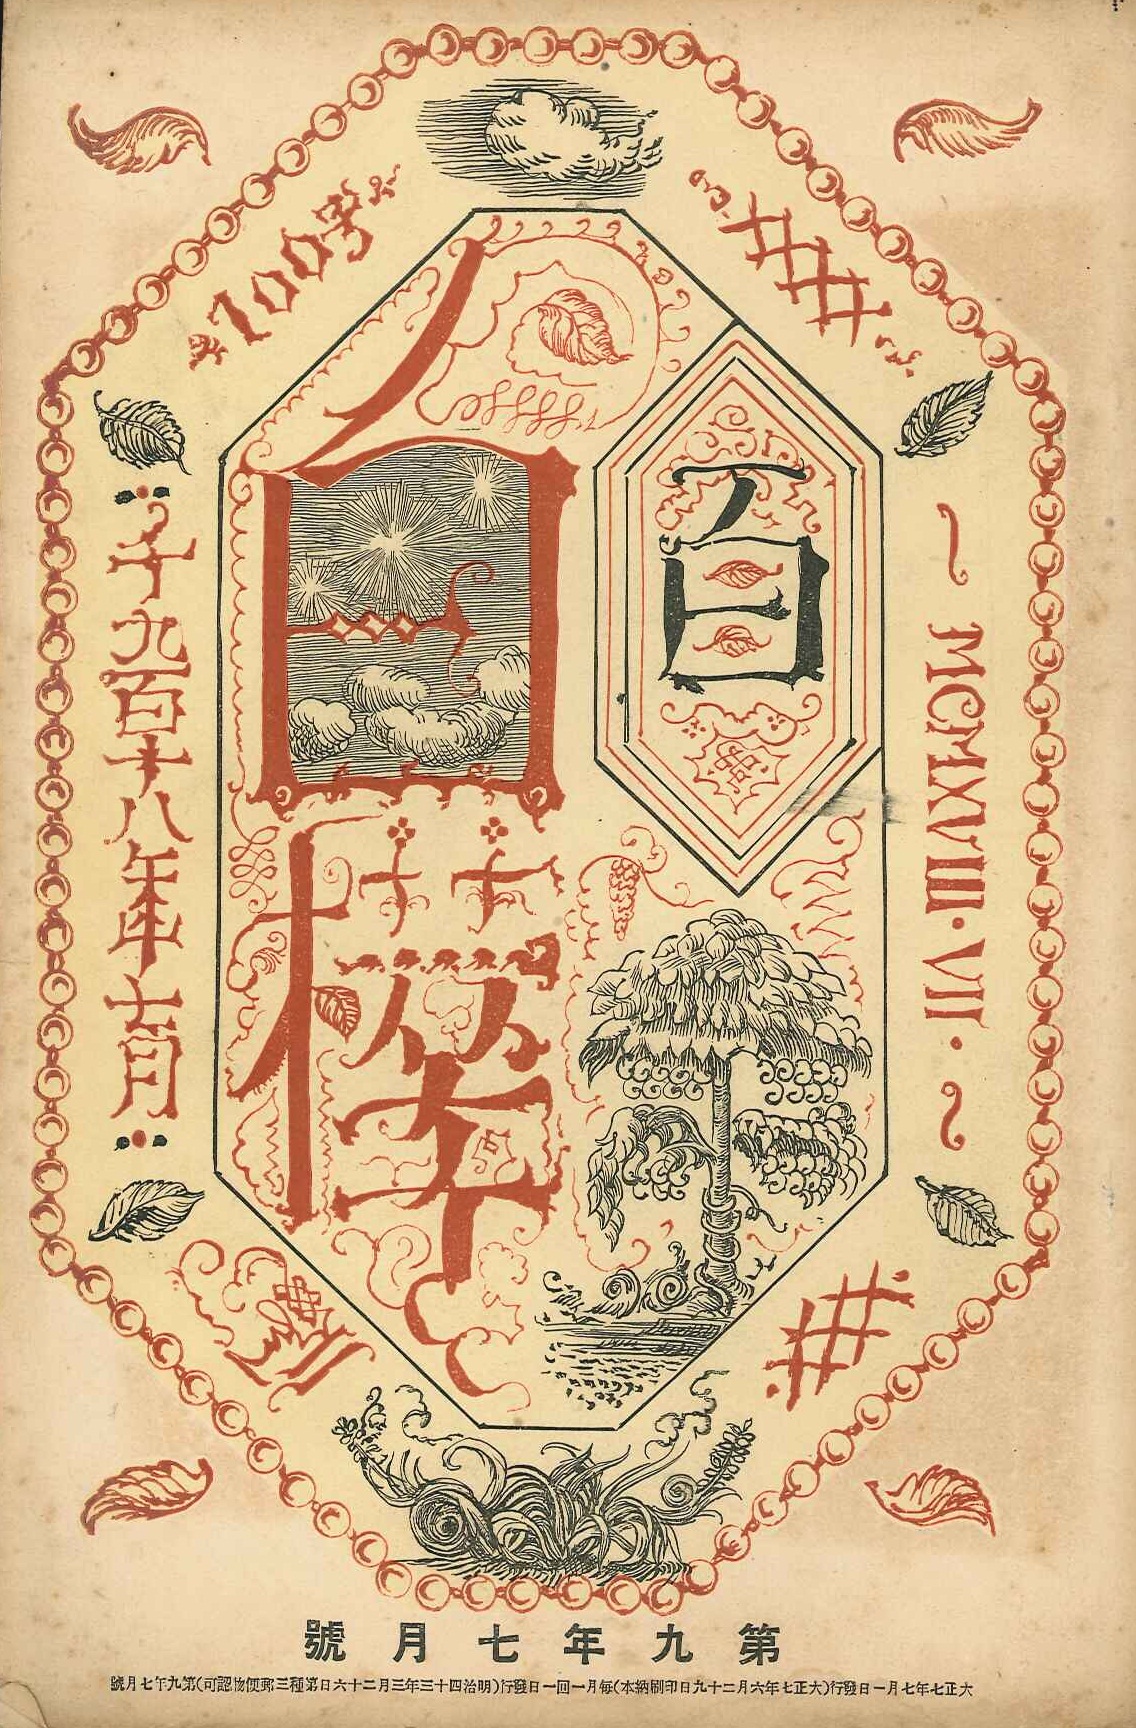 100号
百
白樺
MCMXVIII·VII·
千九百十八年七月
第九年七月號
大正七年七月一日發行(大正七年六月二十九日印刷納本)每月一回一日發行(明治四十三年三月二十六日第三種郵便物認可)第九年七月號